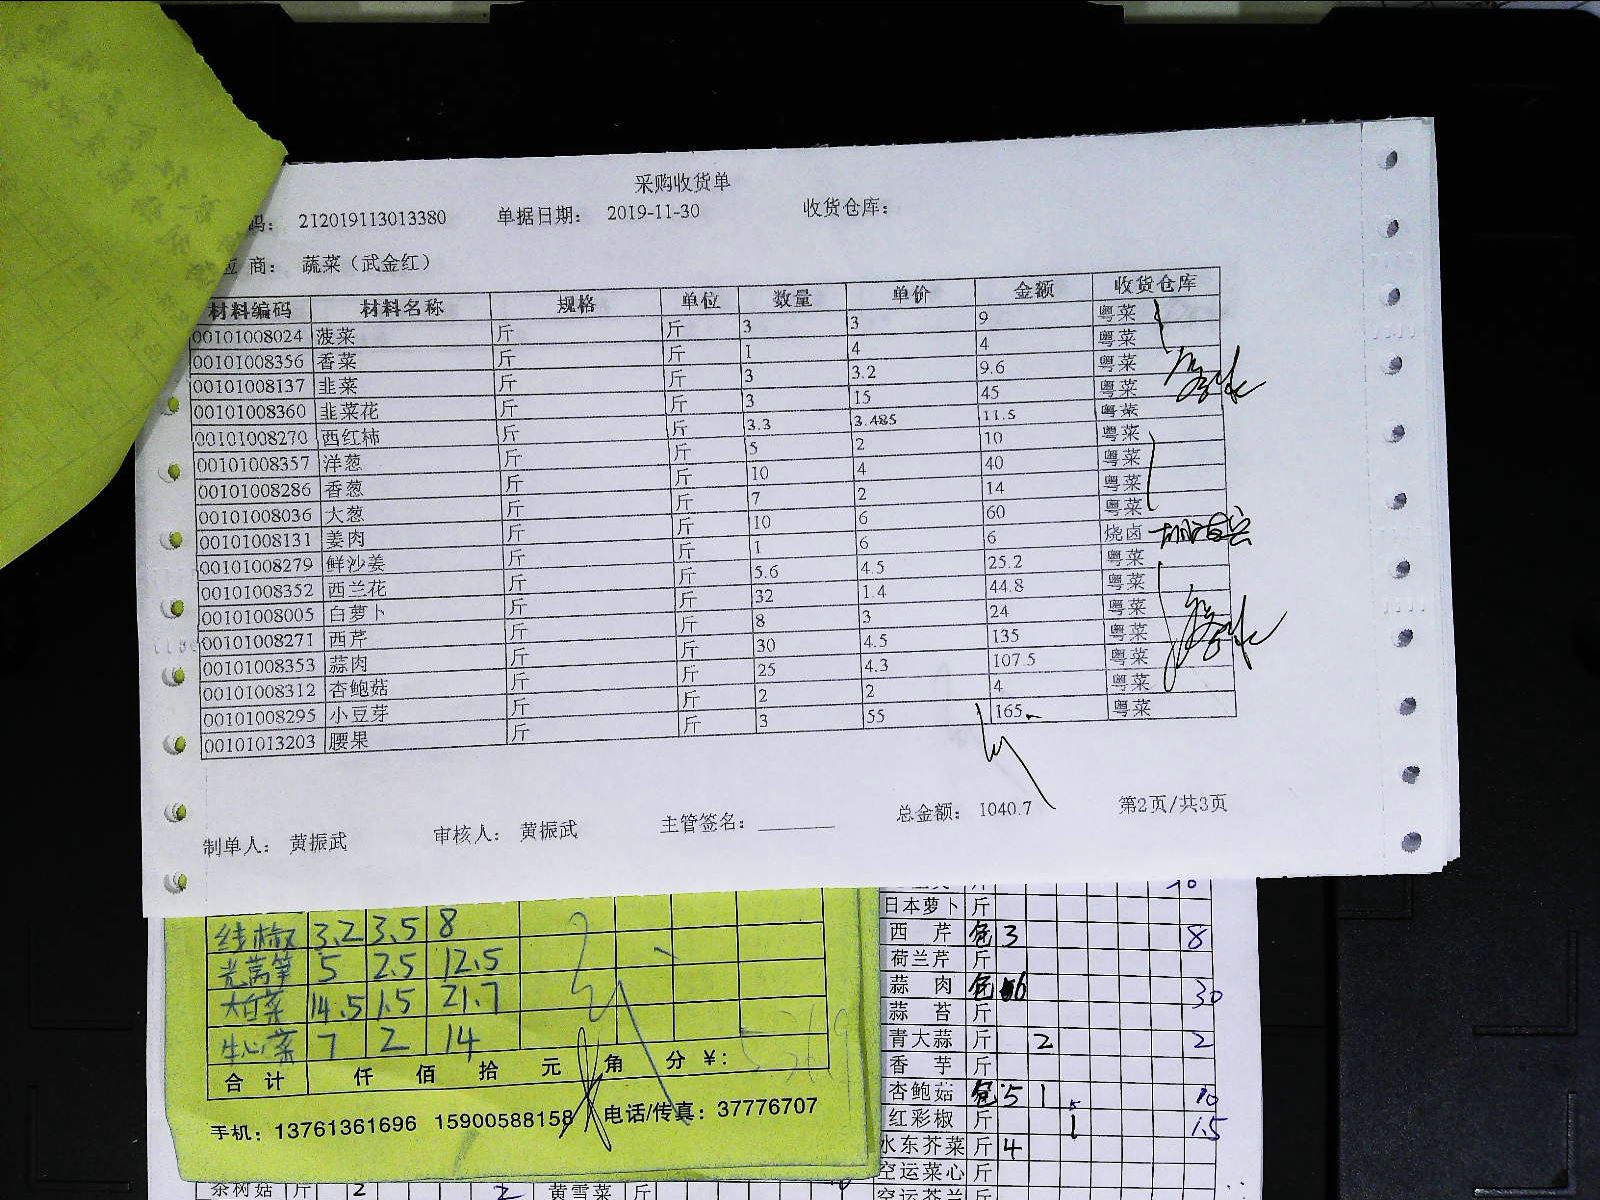 采购收货单
码： 212019113013380 单据日期： 2019-11-30 收货仓库：
应 商： 蔬菜（武金红）
材料编码 材料名称 规格 单位 数量 单价 金额 收货仓库
00101008024 菠菜 斤 斤 3 3 9 粤菜
00101008356 香菜 斤 斤 1 4 4 粤菜
00101008137 韭菜 斤 斤 3 3.2 9.6 粤菜
00101008360 韭菜花 斤 斤 3 15 45 粤菜
00101008270 西红柿 斤 斤 3.3 3.485 11.5 粤菜
00101008357 洋葱 斤 斤 5 2 10 粤菜
00101008286 香葱 斤 斤 10 4 40 粤菜
00101008036 大葱 斤 斤 7 2 14 粤菜
00101008131 姜肉 斤 斤 10 6 60 粤菜
00101008279 鲜沙姜 斤 斤 1 6 6 烧卤
00101008352 西兰花 斤 斤 5.6 4.5 25.2 粤菜
00101008005 白萝卜 斤 斤 32 1.4 44.8 粤菜
00101008271 西芹 斤 斤 8 3 24 粤菜
00101008353 蒜肉 斤 斤 30 4.5 135 粤菜
00101008312 杏鲍菇 斤 斤 25 4.3 107.5 粤菜
00101008295 小豆芽 斤 斤 2 2 4 粤菜
00101013203 腰果 斤 斤 3 55 165 粤菜
制单人： 黄振武 审核人： 黄振武 主管签名： 总金额： 1040.7 第2页/共3页
线椒 3.2 3.5 8
光莴笋 5 2.5 12.5
大白菜 14.5 1.5 21.7
牛心菜 7 2 14
合 计 仟 佰 拾 元 角 分 ￥：
手机：13761361696 15900588158 电话/传真：37776707
日本萝卜 斤
西 芹 包 3 8
荷兰芹 斤
蒜 肉 包 6 30
蒜 苔 斤
青大蒜 斤 2 2
香 芋 斤
杏鲍菇 包 5 1 10
红彩椒 斤 1 1.5
水东芥菜 斤 4
空运菜心 斤
空运芥兰 斤
茶树菇 斤 2 2 黄雪菜 斤